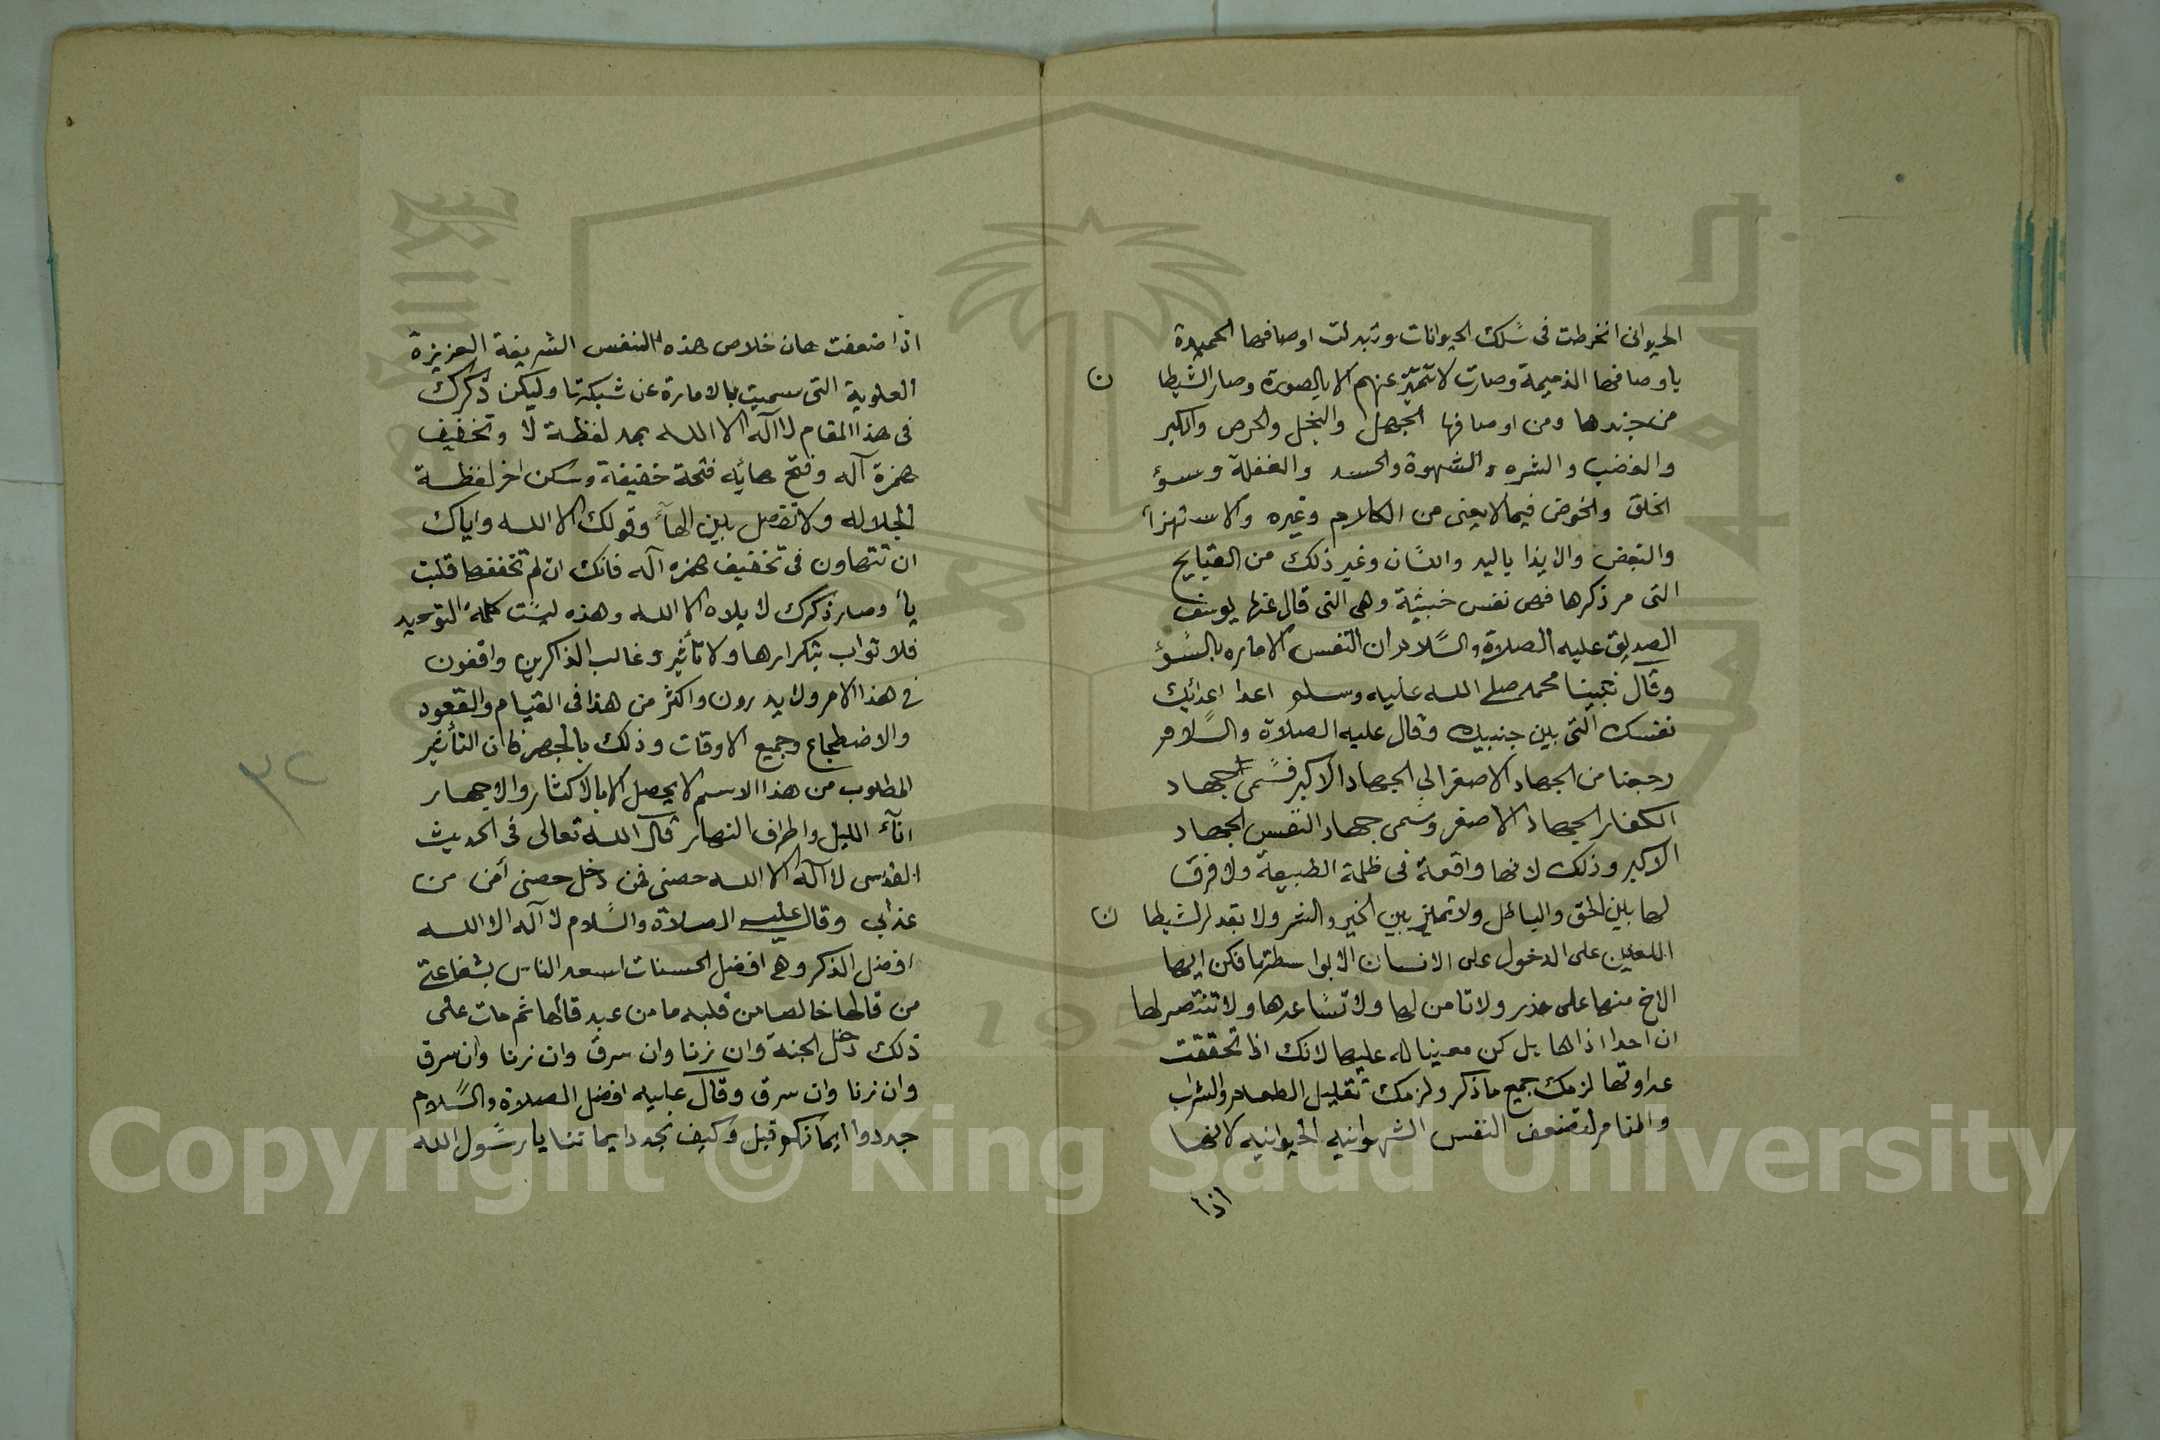 الحيواني انخرطت في سلك الحيوانات وتبدلت اوصافها الحميدة
باوصافها الذميمة وصارت لا تتميز عنهم الا بالصورة وصار الشيطان
من جندها ومن اوصافها الجهل والبخل والحرص والكبر
والغضب والشره والشهوة والحسد والغفلة وسوء
الخلق والخوض فيما لا يعني من الكلام وغيره والاستهزاء
والبغض والايذا باليد واللسان وغير ذلك من القبايح
التي مر ذكرها فهي نفس خبيثة وهي التي قال عنها يوسف
الصديق عليه الصلاة والسلام ان النفس لاماره بالسوء
وقال نبينا محمد صلى الله عليه وسلم اعدا اعدائك
نفسك التي بين جنبيك وقال عليه الصلاة والسلام
رجعنا من الجهاد الاصغر الي الجهاد الاكبر فسمى جهاد
الكفار الجهاد الاصغر وسمى جهاد النفس الجهاد
الاكبر وذلك لانها واقعة في ظلمة الطبيعة ولا فرق
لها بين الحق والباطل ولا تميز بين الخير والشر ولا يقدر الشيطان
اللعين على الدخول على الانسان الا بواسطتها فكن ايها
الاخ منها على حذر ولا تامن لها ولا تساعدها ولا تنتصر لها
ان احدا اذاها بل كن معينا له عليها لانك اذا تحققت
عداوتها لزمك جميع ما ذكر ولزمك تقليل الطعام والشراب
والمنام لتضعف النفس الشهوانيه الحيوانيه لانها
اذا
اذا ضعفت هان خلاص هذه النفس الشريفة العزيزة
العلوية التي سميت بالامارة عن شبكتها وليكن ذكرك
في هذا المقام لا آله الا الله بمد لفظة لا وتخفيف
همزة آله وفتح هائه فتحة خفيفة وسكن اخر لفظة
الجلاله ولا تفصل بين الهآء وقولك الا الله واياك
ان تتهاون في تخفيف همزه آله فانك ان لم تخففها قلبت
يأ وصار ذكرك لا يلاه الا الله وهذه ليست كلمة التوحيد
فلا ثواب بتكرارها ولا تأثير وغالب الذاكرين واقفون
في هذا الامر ولا يدرون واكثر من هذا في القيام والقعود
والاضطجاع وجميع الاوقات وذلك بالجهر فان التأثير
المطلوب من هذا الاسم لا يحصل الا بالاكثار والاجهار
انآء الليل واطراف النهار قال الله تعالى في الحديث
القدسي لا آله الا الله حصني فمن دخل حصني أمن من
عذابي وقال عليه الصلاة والسلام لا آله الا الله
افضل الذكر وهي افضل الحسنات اسعد الناس بشفاعتي
من قالها خالصا من قلبه ما من عبد قالها ثم مات على
ذلك دخل الجنة وان زنا وان سرق وان زنا وان سرق
وان زنا وان سرق وقال عليه افضل الصلاة والسلام
جددوا ايمانكم قيل وكيف نجدد ايماننا يا رسول الله
٣٢
Copyright © King Saud University